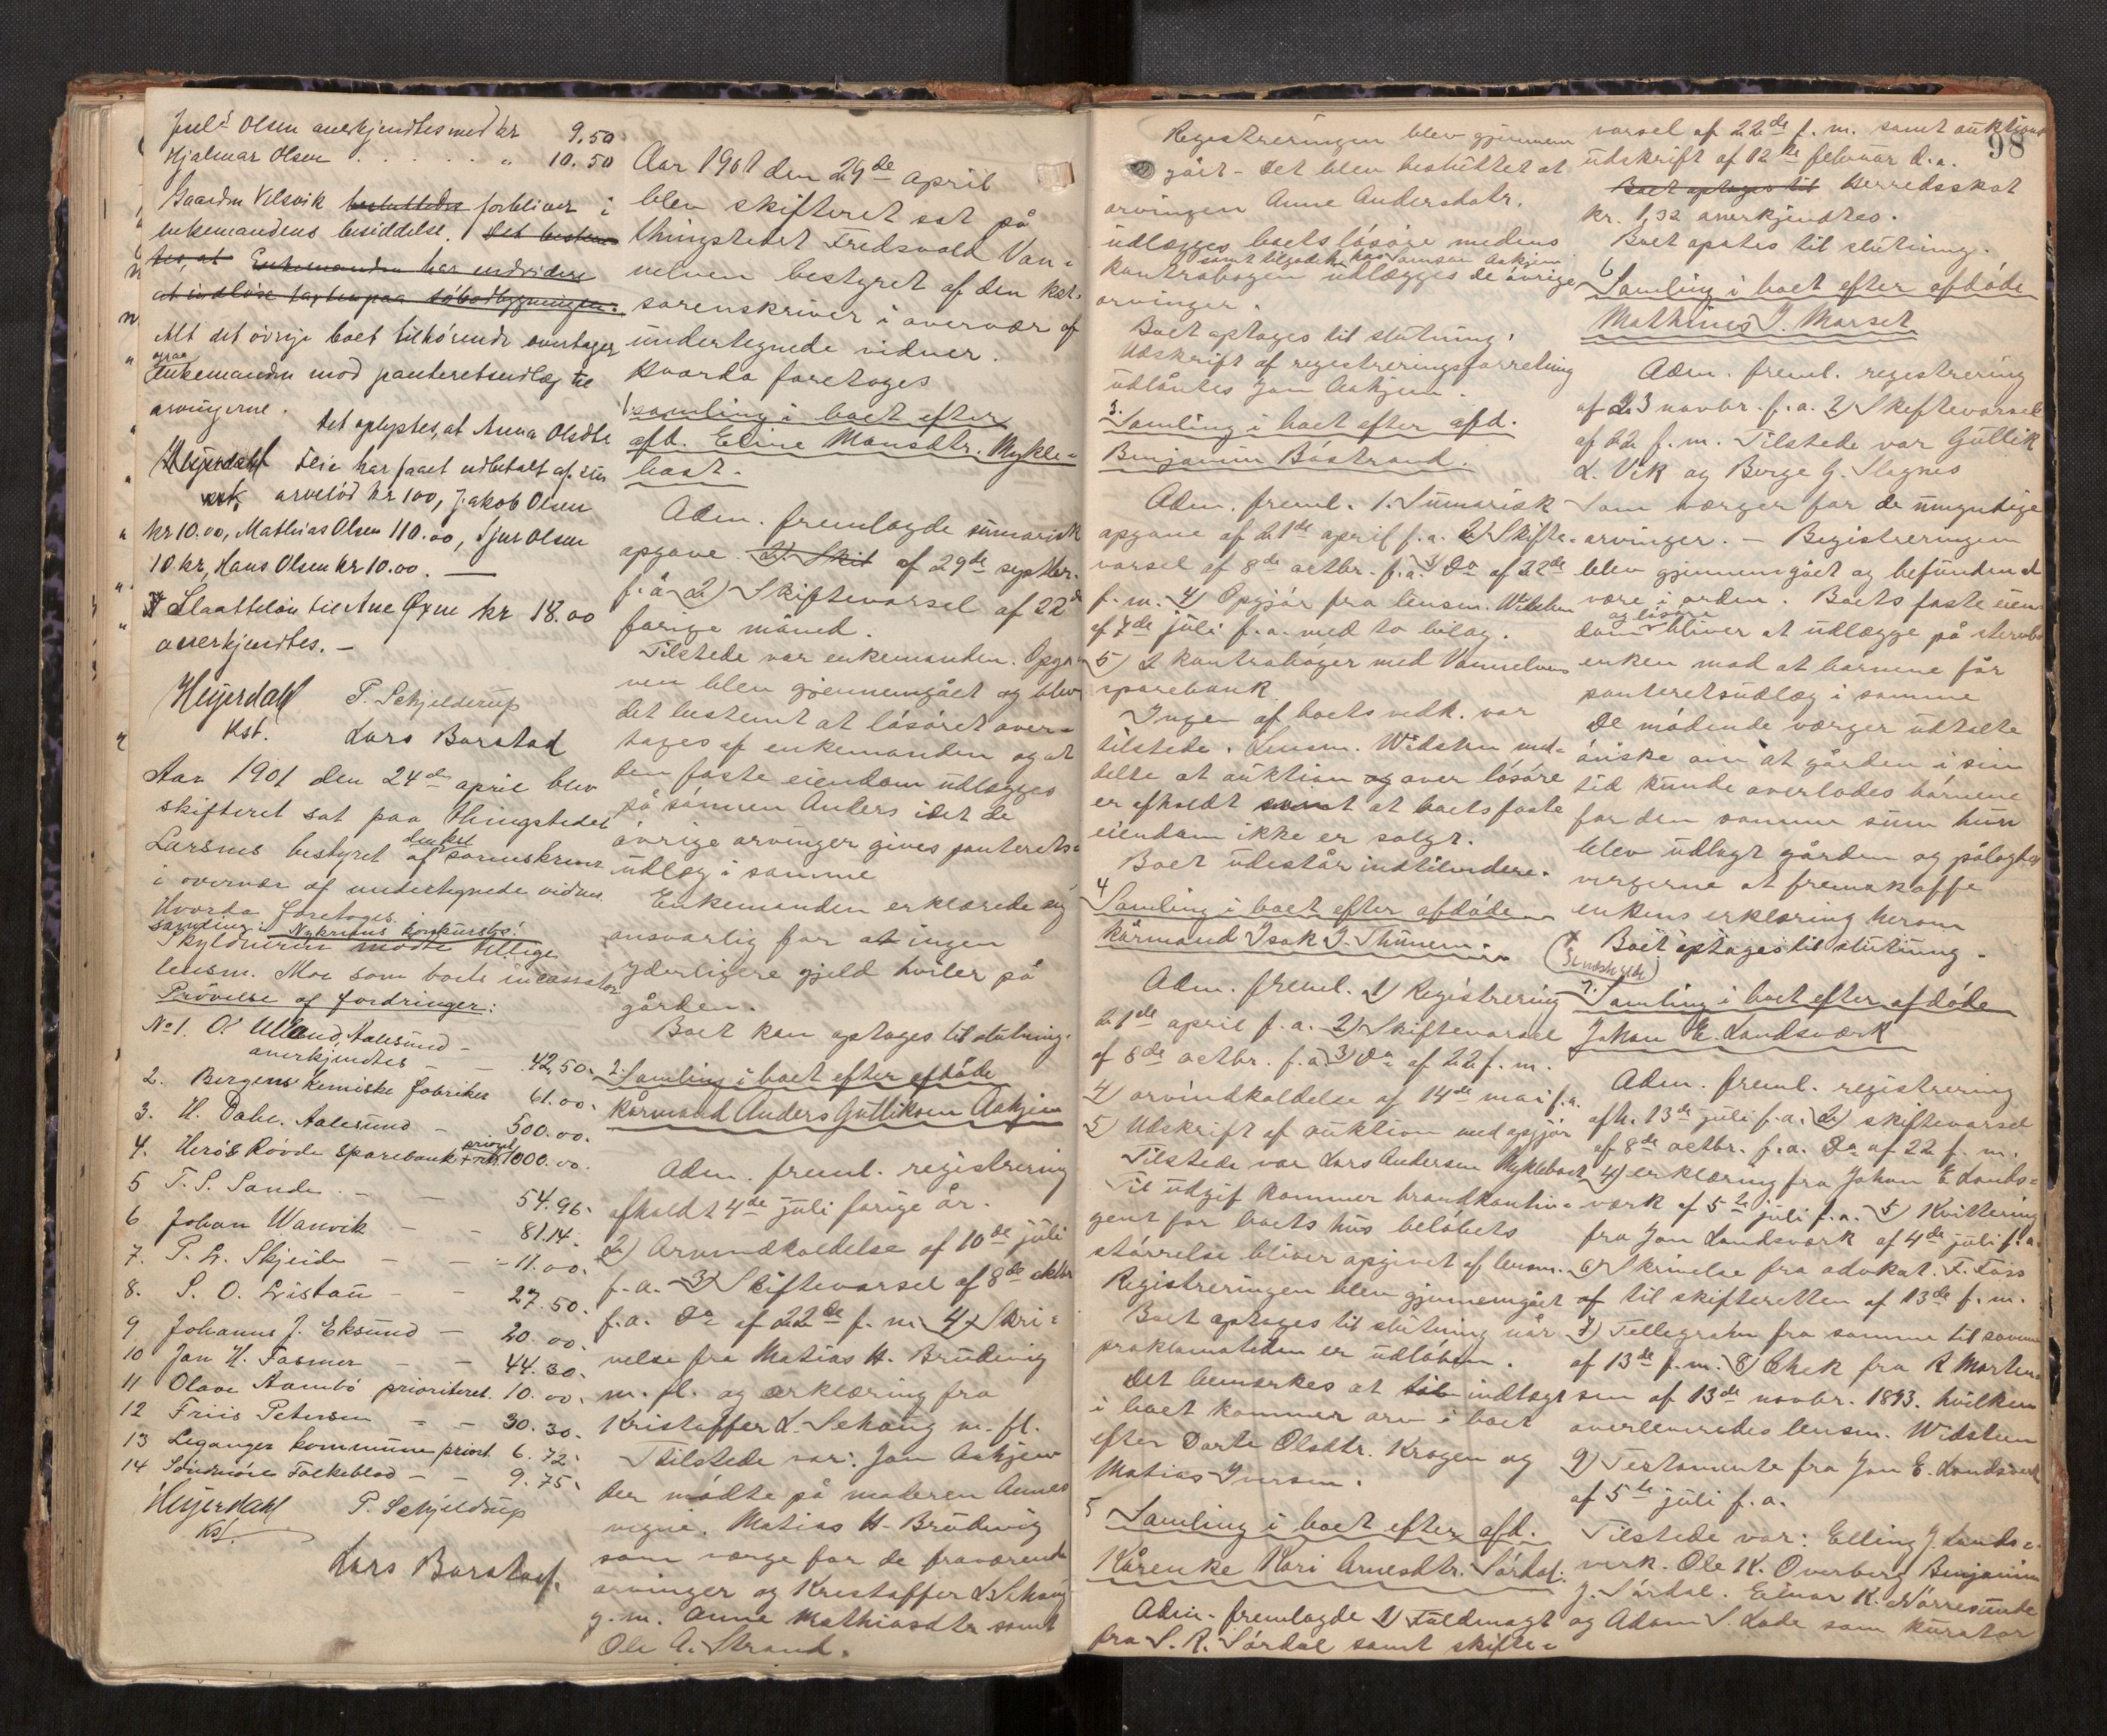 Juls Olsen anerkjendtes med kr 9.50
Hjalmar Olsen . . . . . " 10.50
Gaarden Velsvik besluttedes forbliver i
enkemandens besiddelse. Det bestem
tes, at Enkemanden har endvidere
at indløse taxten paa søbodbygningen.
Alt det øvrige boet tilhørende overtager
ogsaa
enkemanden mod panteretsudlæg til
arvingerne.
Det oplystes, at Anna Olsdtr
Heyerdahl Ilie har faaet udbetalt af sin
kst. arvelod kr 100, Jakob Olsen
kr 10.00, Mathias Olsen 110.00, Sjur Olsen
10 kr, Hans Olsen kr 10.00. —
Slaatteløn til Ane Øyne kr 18.00
anerkjendtes. —
Heyerdahl P. Schjelderup
kst. Lars Barstad
Aar 1901 den 24de april blev
skifteret sat paa thingstedet
Larsnes bestyret af den kst sorenskriver
i overvær af undertegnede vidner
Hvorda foretoges
samling i Nykreims konkursbo:
Skyldneren mødte tillige
lensm. Moe som boets incassator
Prøvelse af fordringer:
No 1. O. Ulland, Aalesund -
anerkjendtes - - 42,50.
2. Bergens kemiske fabriker 61.00.
3. H. Dahl. Aalesund - 500.00.
4. Herø & Røvde sparebank priorit + rtr. 1000.00.
5 T. S. Sande - - 54.96.
6 Johan Wanvik - - 81.14.
7. P. L. Skjeide - - - 11.00.
8. S. O. Listau - - 27.50.
9 Johannes J. Eksund - 20.00.
10 Jan H. Fasmer - - 44.30.
11 Olave Aambø prioriteret. 10.00.
12 Friis Petersen - - 30.30.
13 Leganger kommune priort. 6.72.
14 Søndmøre Folkeblad - - 9.75.
Heyerdahl P. Schjelderup
Kst.
Lars Barstad.
Aar 1901 den 29de april
blev skifteret sat på
thingstedet Fredsvold Van=
nelven bestyret af den kst.
sorenskriver i overvær af
undertegnede vidner.
Hvorda foretoges
1 samling i boet efter
afd. Eline Monsdtr. Mykle=
bost.
Adm. fremlagde sumarisk
opgave 2) Skif af 29de septbr.
f. å 2) Skiftevarsel af 22de
forige måned.
Tilstede var enkemanden. Opga=
ven blev gjennemgået og blev
det bestemt at løsøret over=
tages af enkemanden og at
den faste eiendom udlægges
på sønnen Anders idet de
øvrige arvinger gives panterets=
udlæg i samme
Enkemanden erklærede sig
ansvarlig for at ingen
yderligere gjeld hviler på
gården.
Boet kan optages til slutning.
2. Samling i boet efter afdøde
kårmand Anders Gulliksen Aahjem
Adm. freml. registrering
afholdt 4de juli forige år.
2) Arvindkaldelse af 10de juli
f. a. 3) Skiftevarsel af 8de oktbr
f.a. Do af 22de f. m. 4) Skri=
velse fra Matias H. Brudevig
m. fl. og erklæring fra
Kristoffer L. Sehaug m. fl.
Tilstede var: Jan Aahjem
der mødte på moderen Annes
vegne. Matias H. Brudevig
som værge for de fraværende
arvinger og Kristoffer L. Sehaug
g. m. Anne Mathiasdtr samt
Ole A. Strand.
98
Registreringen blev gjennem
gået - Det blev besluttet at
arvingen Anne Andersdatr.
udlægges boets løsøre medens
samt tilgodeh. hos Aahjem
kontrabogen udlægges de øvrige
arvinger.
Boet optages til slutning.
Udskrift af registreringsforretning
udlåntes Jan Aahjem.
3. Samling i boet efter afd.
Benjamin Båstrand.
Adm. freml. 1. Sumarisk
opgave af 21de april f. a. 2) Skifte=
varsel af 8de octbr. f. a. 3) Do af 22de
f. m. 4) Opgjør fra lensm. Widsteen
af 7de juli f. a. med to bilag.
5) 2 kontrabøger med Vannelvens
sparebank
Ingen af boets vedk. var
tilstede. Lensm. Widsteen med=
delte at auktion og over løsøre
er afholdt samt at boets faste
eiendom ikke er solgt.
Boet udestår indtilvidere.
4 Samling i boet efter afdøde
kårmand Isak J. Thunem.
Adm. freml. 1) Registrering
21de april f. a. 2) Skiftevarsel
af 8de octbr. f. a. 3) Do af 22 f. m.
4) arvindkaldelse af 14de mai f. a.
5) Udskrift af auktion med opgjør
Tilstede var Lars Andersen Myklebost
Til udgif kommer brandkontin=
gent for boets hus beløbets
størrelse bliver opgivet af lensm.
Registreringen blev gjennemgået
Boet optages til slutning når
proklamatiden er udløben.
Det bemærkes at til indtægt
i boet kommer arv i boet
efter Dorte Olsdtr. Krogen og
Matias Iversen.
5 Samling i boet efter afd.
Kårenke Kari Arnesdtr. Sørdal.
Adm. fremlagde 1) Fuldmagt
fra S. R. Sørdal samt skifte=
varsel af 22de f. m. samt auktions
udskrift af 12te februar d. a.
Boet optages til Herredsskat
kr. 1,32 anerkjendtes.
Boet opates til slutning.
6 Samling i boet efter afdøde
Mathines J. Marset
Adm. freml. registrering
af 23 novbr. f. a. 2) Skiftevarsel
af 22 f. m. Tilstede var Gullik
L. Vik og Borge G. Slagnes
Som værger for de umyndige
arvinger. — Registreringen
blev gjennemgået og befunden at
være i orden. Boets faste eien
og løsøre
dom bliver at udlægge på stervbo
enken mod at børnene får
panteretsudlæg i samme
De mødende værger udtalte
ønske om at gården i sin
tid kunde overlades børnene
for den samme sum hun
blev udlagt gården og pålagdes
vergerne at fremskaffe
enkens erklæring herom
Boet optages til slutning.
7. Samling i boet efter afdøde
Johan E. Landsværk
Adm. freml. registrering
afh. 13de juli f. a. 2) skiftevarsel
af 8de octbr. f. a. Do af 22 f. m.
4) erklæring fra Johan E Lands=
værk af 5te juli f. a. 5) Kvittering
fra Jan Landsværk af 4de juli f. a.
6) Skrivelse fra advokat. F. Foss
af til skifteretten af 13de f. m.
7) Tellegram fra samme til samme
af 13de f. m. 8) Chek fra R Marten
sen af 13de novbr. 1893. hvilken
overleveredes lensm. Widsteen
9) Testamente fra Jan E. Landsverk
af 5te juli f. a.
Tilstede var: Elling J. Lands=
verk. Ole K. Overberg Benjamin
J. Sørdal. Einar K. Nørresunde
og Adam S. Lade som kurator